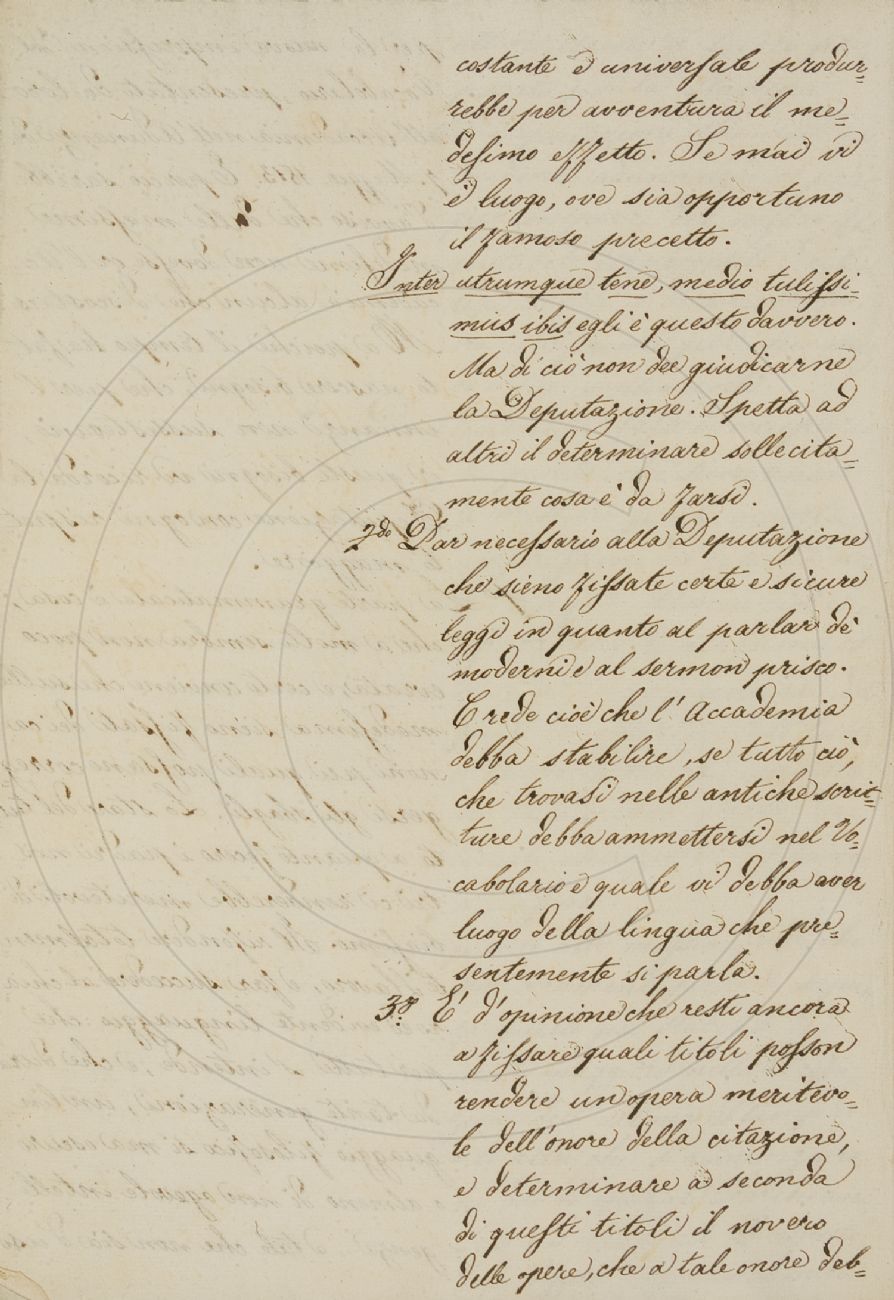 costante e universale produr=
rebbe per avventura il me=
desimo effetto. Se mai vi
è luogo, ove sia opportuno
il famoso precetto.
Inter utrumque tene, medio tulissi=
mus ibis egli è questo davvero.
Ma di ciò non dee giudicarne
la Deputazione. Spetta ad
altri il determinare sollecita=
mente cosa è da farsi.
2do Par necessario alla Deputazione
che sieno fissate certe e sicure
leggi in quanto al parlar de'
moderni e al sermon prisco.
Crede cioè che l'Accademia
debba stabilire, se tutto ciò,
che trovasi nelle antiche scrit=
ture debba ammettersi nel Vo=
cabolario e quale vi debba aver
luogo della lingua che pre=
sentemente si parla.
3o. E' d'opinione che resti ancora
a fissare quali titoli posson
rendere un opera meritevo=
le dell'onore della citazione,
e determinare a seconda
di questi titoli il novero
delle opere, che a tale onore deb=